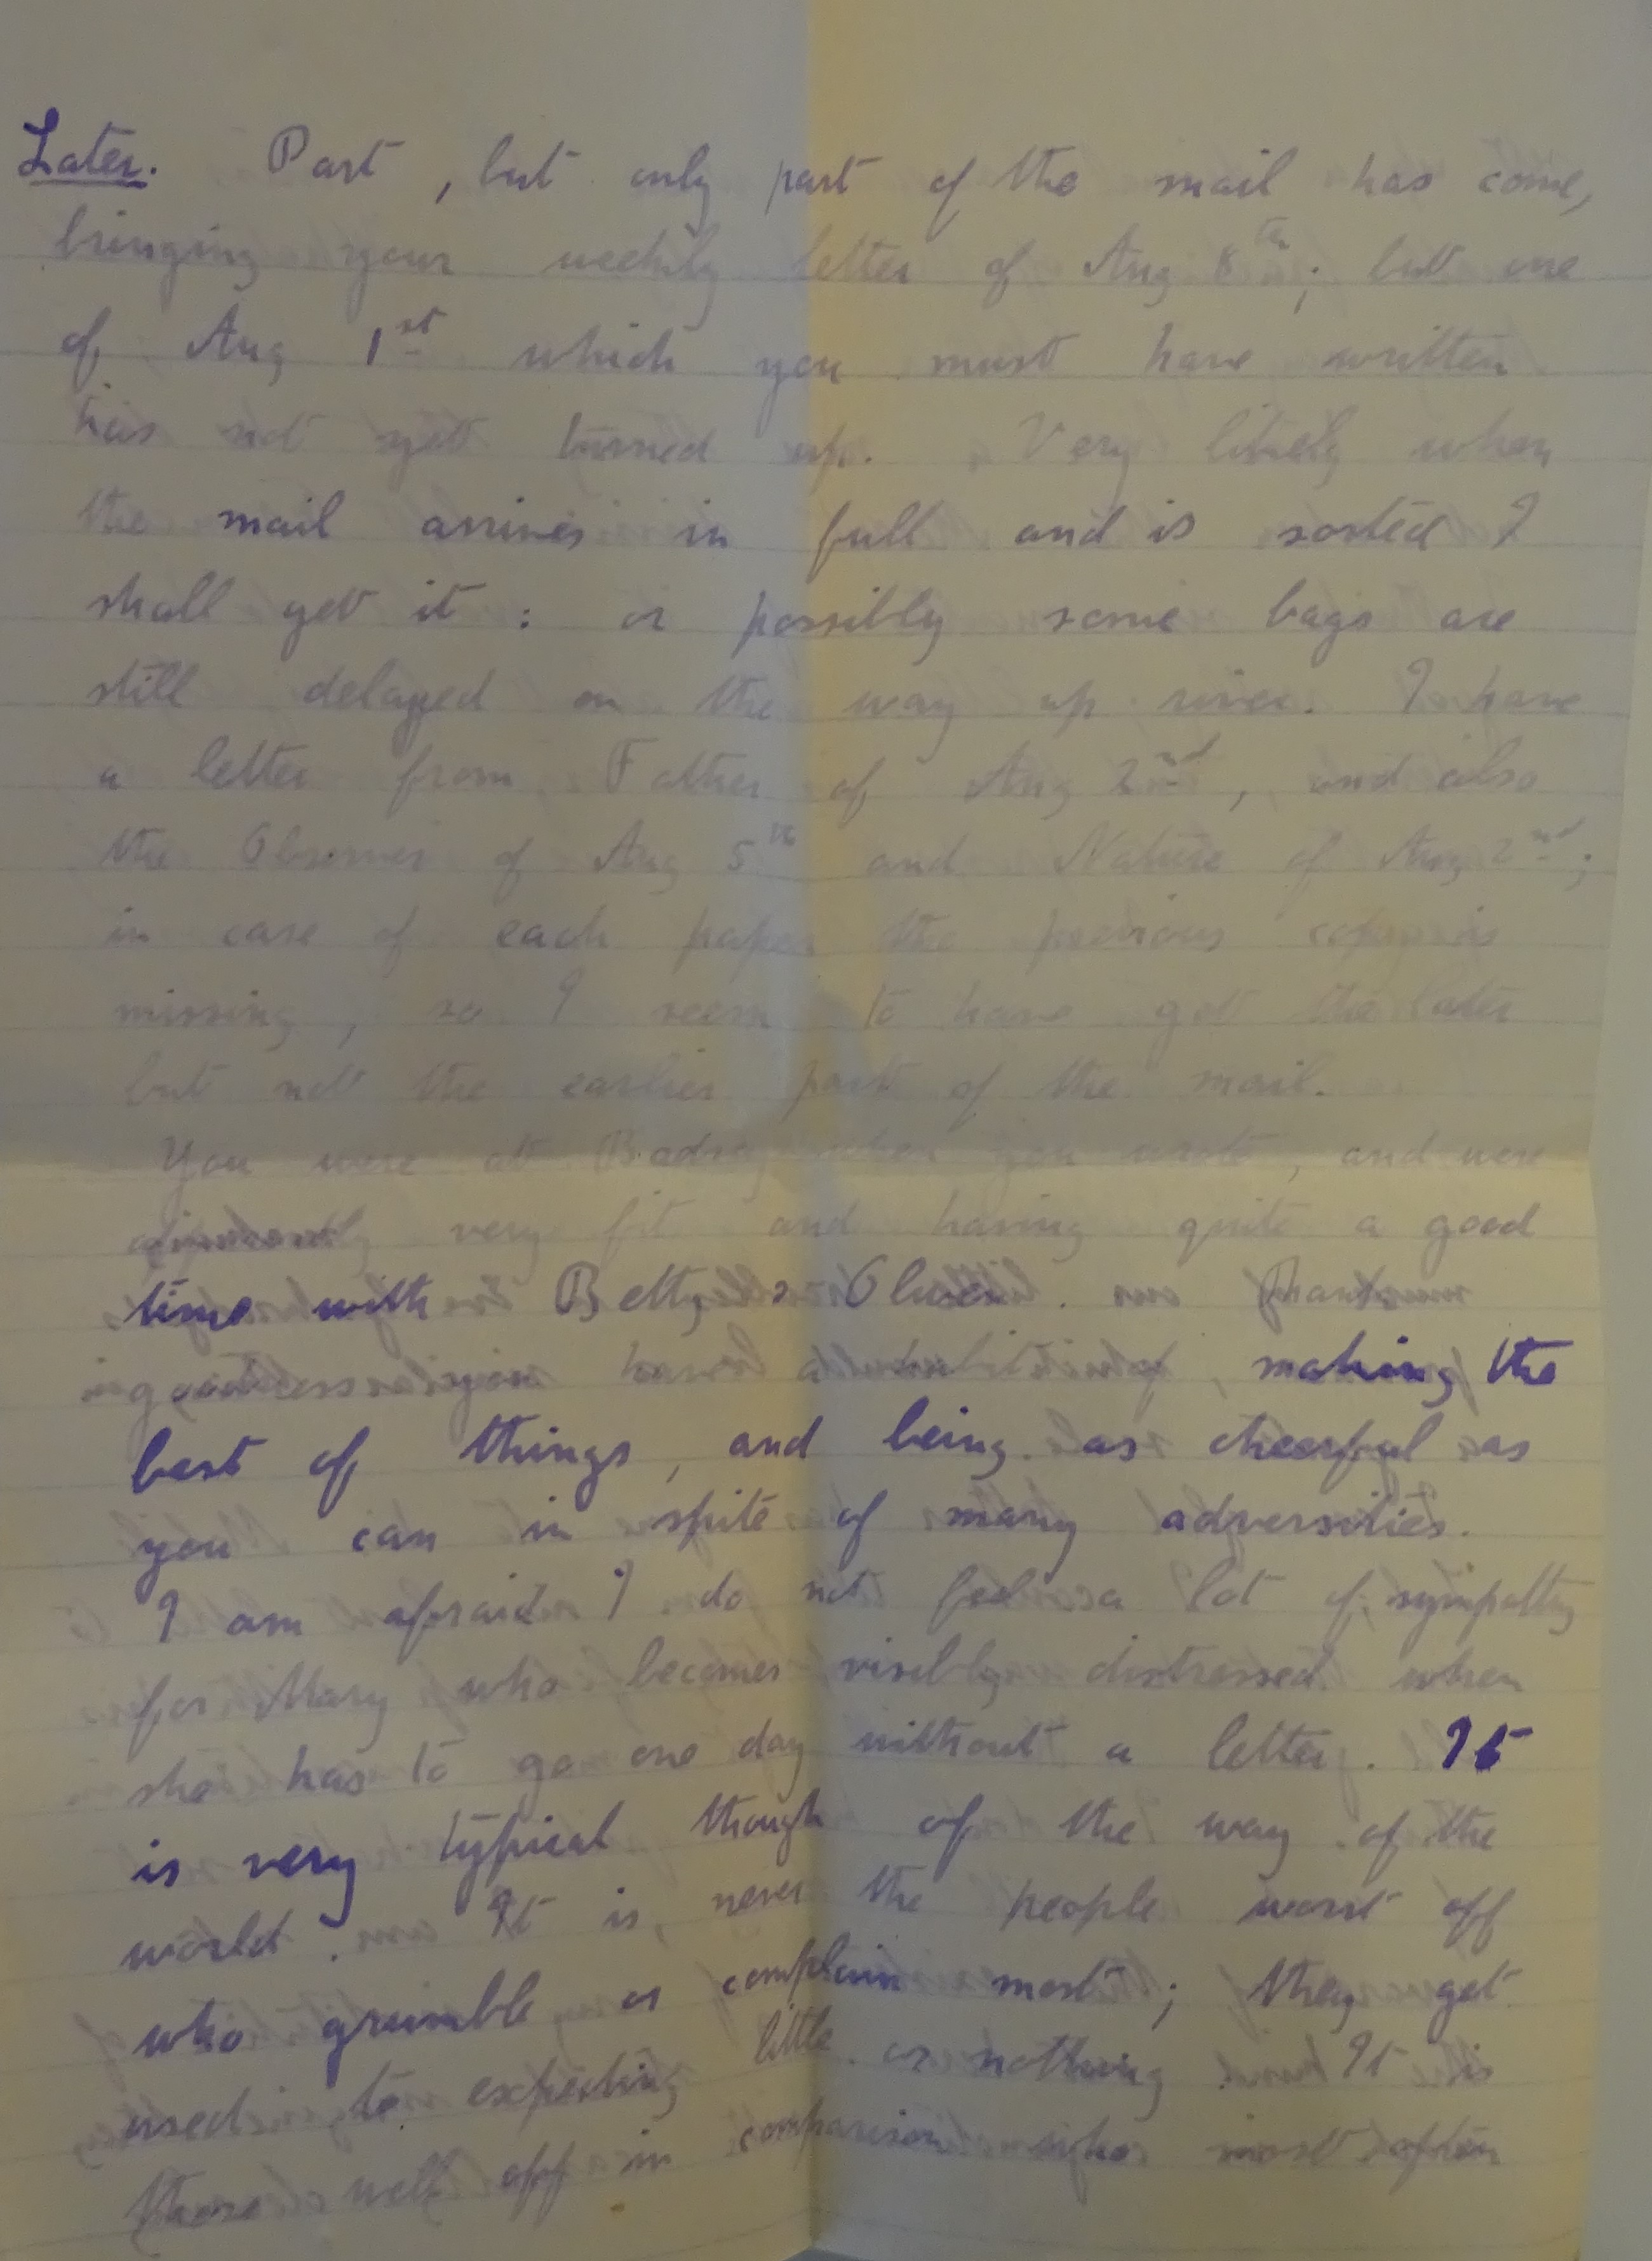 Later. Part, but only part of the mail has come,
bringing your weekly letter of Aug 8th; but one
of Aug 1st which you must have written
has not yet turned up. Very likely when
the mail arrives in full and is sorted I
shall get it: or possibly some bags are
still delayed on the way up river. I have
a letter from Father of Aug 2nd, and also
the Observer of Aug 5th and Nature of Aug 2nd;
in case of each paper the previous copy is
missing, so I seem to have got the later
but not the earlier part of the mail.
You were at when you wrote, and were
apparently very fit and having quite a good
time with Betty & Oliver.
, making the
best of things, and being as cheerful as
you can in spite of many adversities.
I am afraid I do not feel a lot of sympathy
for Mary who becomes visibly distressed when
she has to go one day without a letter. It
is very typical though of the way of the
world. It is never the people worst off
who grumble or complain most; they get
used to expecting little or nothing. It is
those well off in comparison who most often